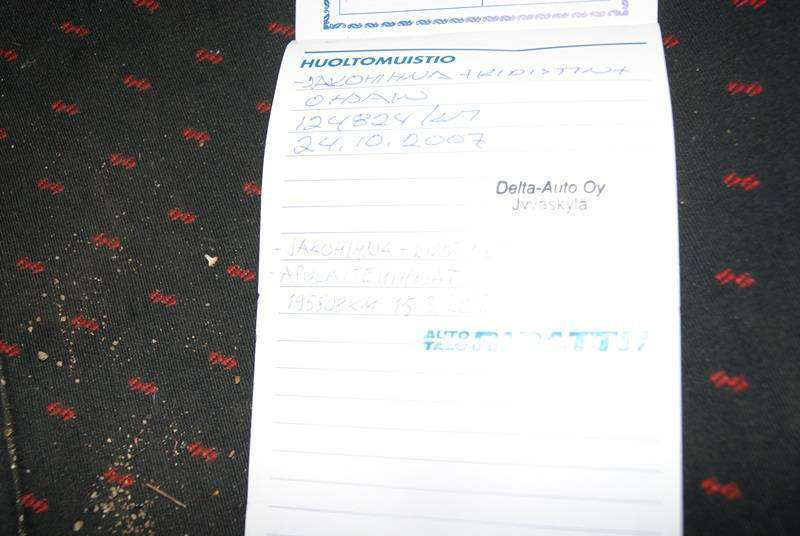 HUOLTOMUISTIO
-JAKOHIHNA + KIRISTIN +
OHJAIN
124824/KM
24.10.2007
Delta-Auto Oy
Jyväskylä
-JAKOHIHNA -
-APULAITEHIHNAT
KM 15
AUTO
TALO